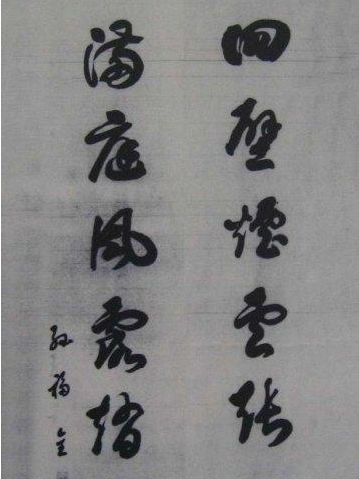 四壁煙雲張
滿庭風露
孫福全